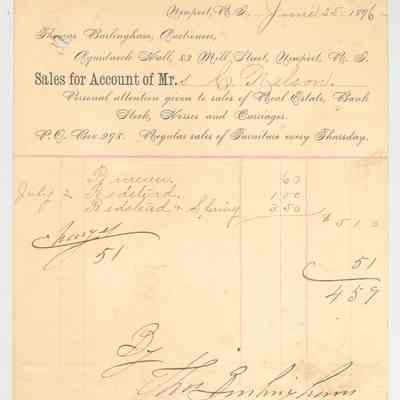 Newport, R. I., June 25 1896
Thomas Burlingham, Auctioneer,
Aquidneck Hall, 53 Mill Street, Newport, R. I.
Sales for Account of Mr.s C. Wilson.
Personal attention given to sales of Real Estate, Bank
Stock, Horses and Carriages.
P. O. Box 298. Regular sales of Furniture every Thursday.
Bureau 60
July 2 Bedstead 1.00
Bedstead & Spring 3.50 $ 5 1 0
Charges
51 51
4 59
By
Thos Burlingham